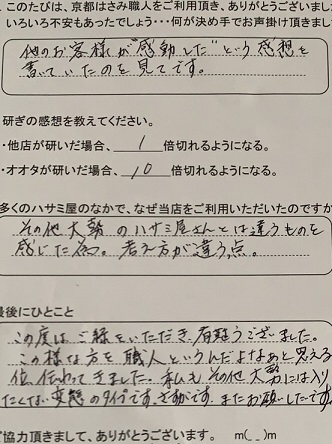 ．このたびは、京都はさみ職人をご利用頂き、ありがとうございまし
いろいろ不安もあったでしょう・・・何が決め手でお声掛け頂きまし
他のお客様が“感動した”という感想を
書いていたのを見てです。
研ぎの感想を教えてください。
・他店が研いだ場合、 1 倍切れるようになる。
・オオタが研いだ場合、 10 倍切れるようになる。
多くのハサミ屋のなかで、なぜ当店をご利用いただいたのですか
その他大勢のハサミ屋さんとは違うものを
感じた為。考え方が違う点。
最後にひとこと
この度はご縁をいただき、有難うございました。
この様な方を職人というんだよなぁと思える
位、伝わってきました。私もその他大勢には入り
たくない変態のタイプです。さすがです。またお願いしたです
ご協力頂きまして、ありがとうございます。 m(_ _)m